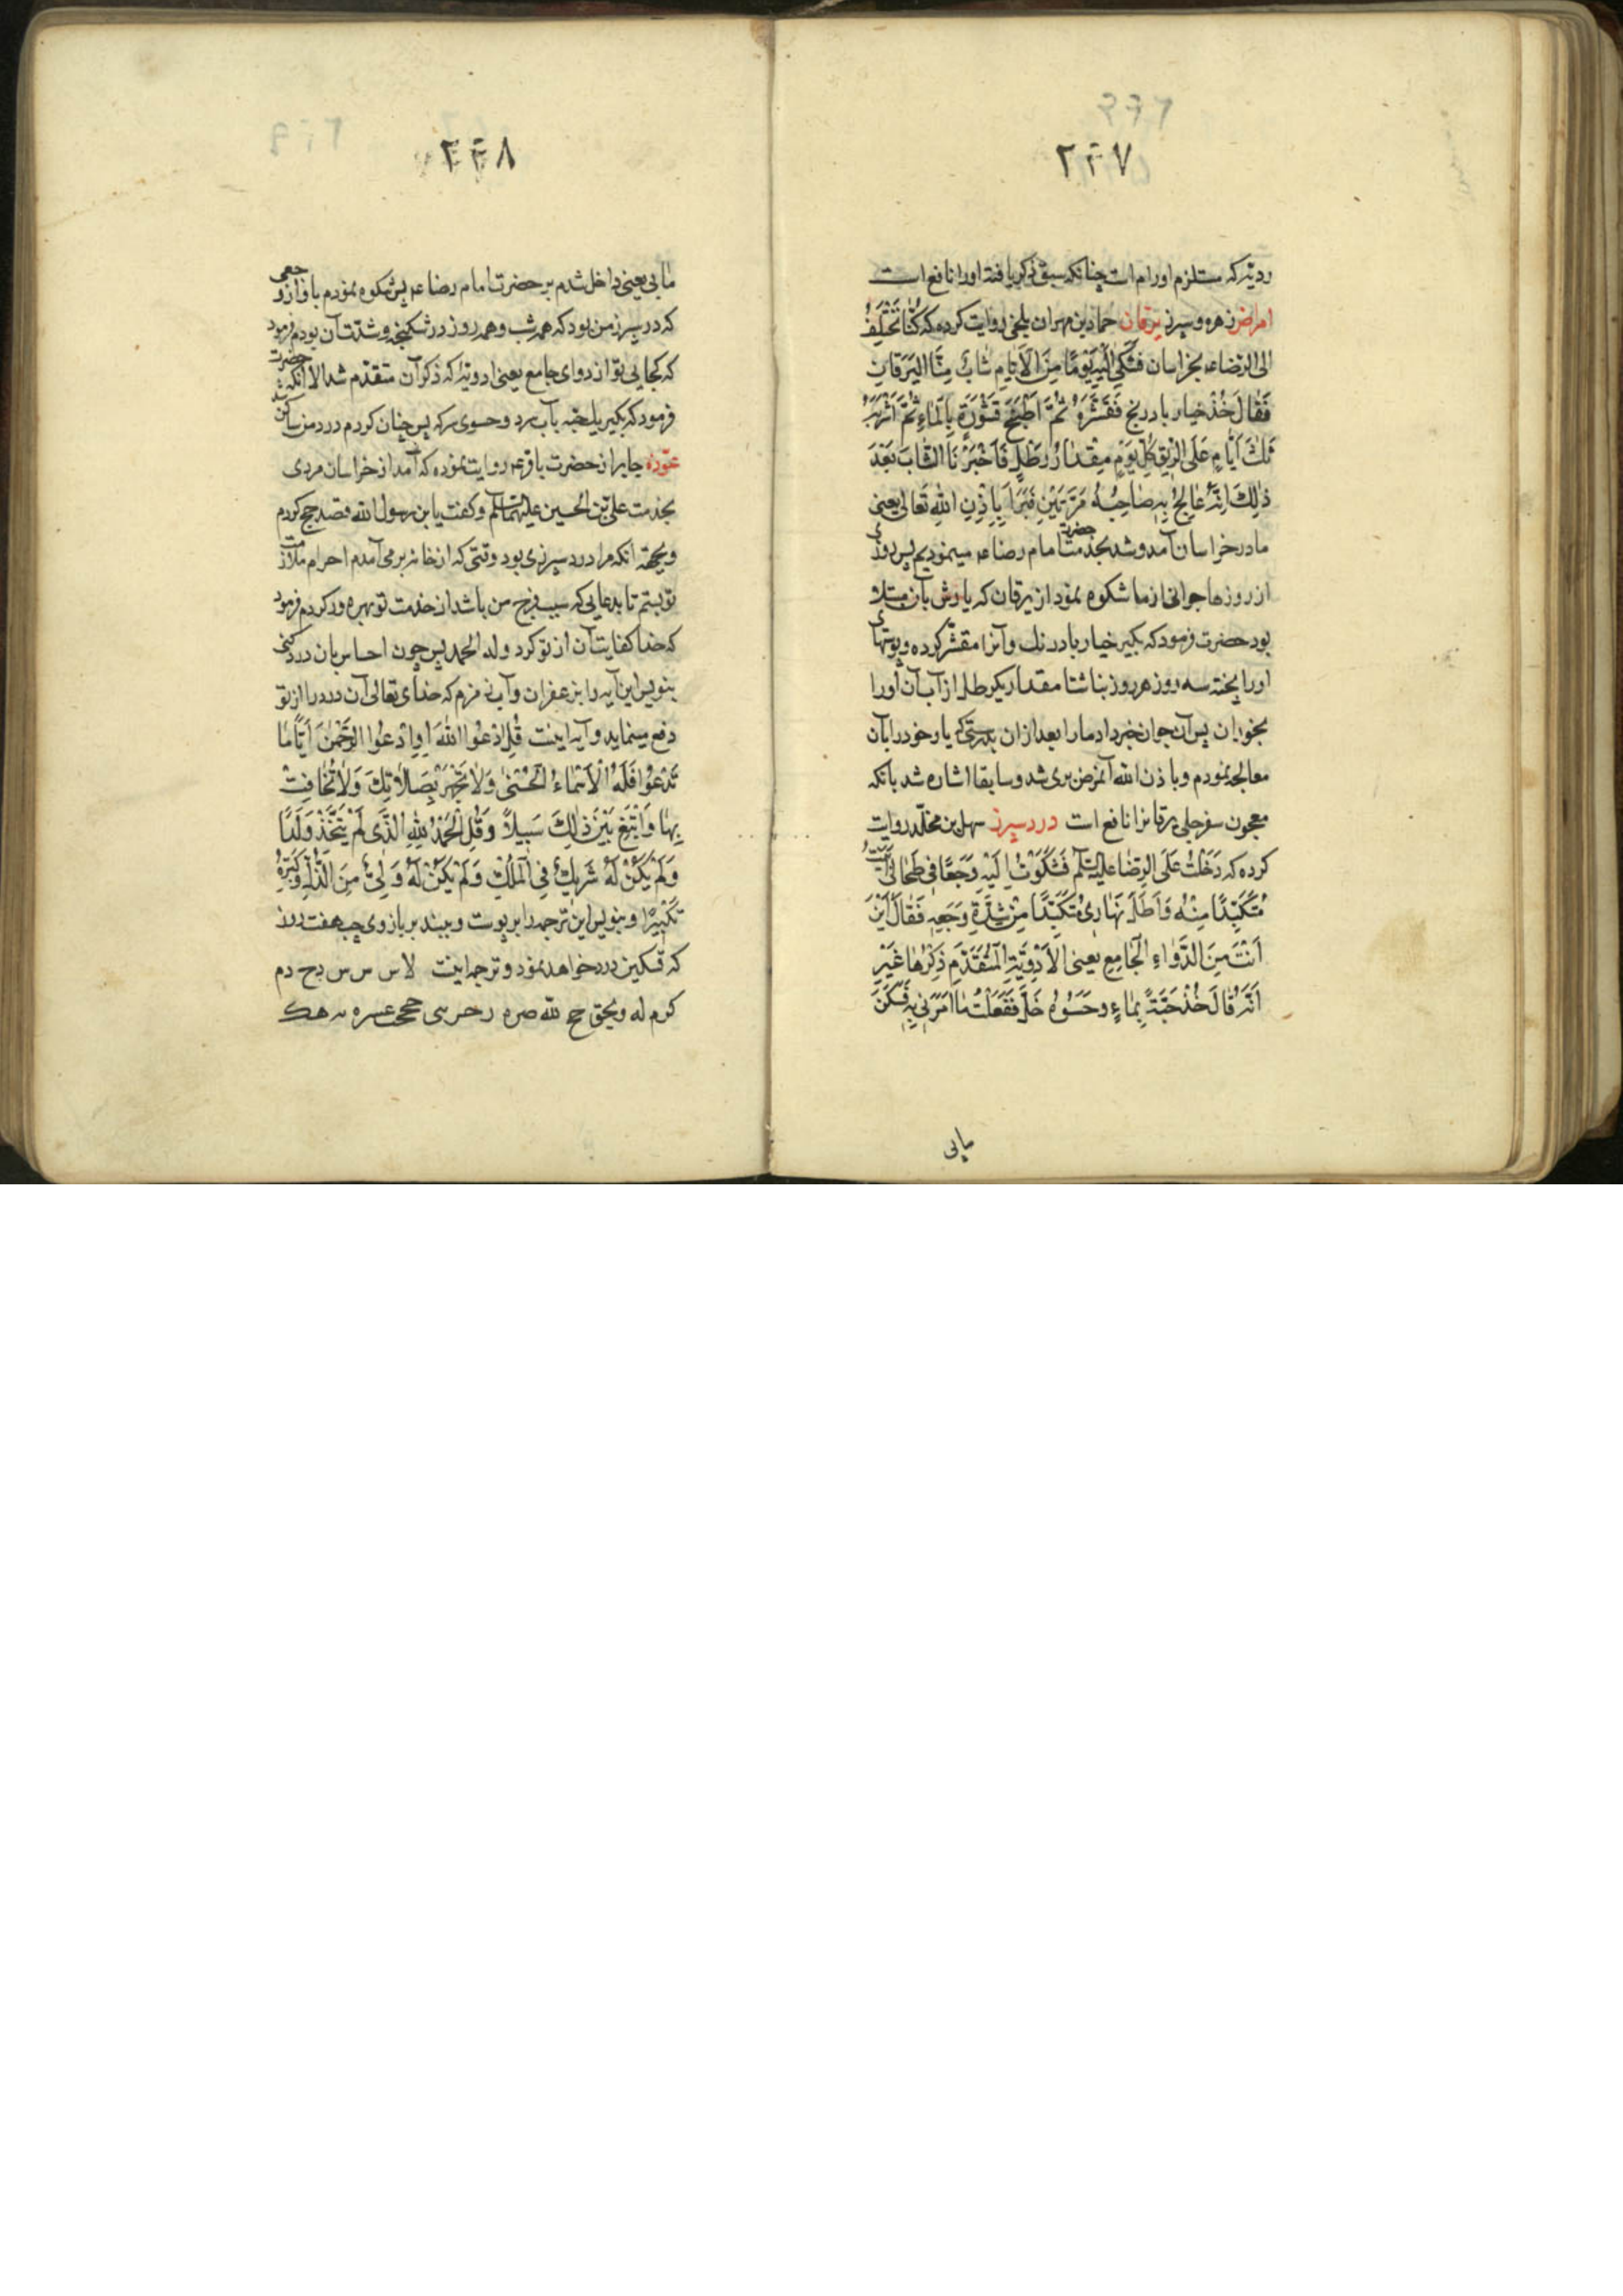 ۲۴۷
ردیّه که مستلزم اورام است چنانکه سبق ذکر یافته اورا نافع است
امراض زهره و سپرز یرقان حماد بن مهران بلخی روایت کرده که کُنّا نَخْتَلِفُ
اِلی الرّضا عه بخراسان فَشَکیٰ اِلَیْهِ یَوْمًا مِنَ الْاَیّامِ شابٌّ مِنَّا الْیَرَقانَ
فَقٰالَ خُذْ خیار بادرنج فَقَشِّرْهُ ثُمَّ اطْبَخْ قُشُورَهُ بِالْمٰاءِ ثُمَّ اشْرَبْهُ
ثَلٰثَ اَیّٰامٍ عَلَی الرّیقِ کُلَّ یَوْمٍ مِقْدٰارُ رِطْلٍ فَاَخْبَرَنَا الشّٰابُّ بَعْدَ
ذٰلِکَ اَنَّهُ عٰالَجَ بِهِ صٰاحِبُهُ مَرَّتَیْنِ فَبَرَاَ بِاِذْنِ اللّٰهِ تَعٰالیٰ یعنی
ما در خراسان آمد و شد بخدمت حضرت امام رضا عه مینمودیم پس روزی
از روزها جوانی از ما شکوه نمود از یرقان که یارش بآن مبتلا
بود حضرت فرمود که بکیر خیار بادرنك و آنرا مقشّر کرده و پوستهای
اورا پخته سه روز هر روز بناشتا مقدار یکرطل از آب آن اورا
بخوران پس آن جوان خبر داد مارا بعد از ان بدرستیکه یار خود را بآن
معالجه نمودم و باذن الله آنمرض بری شد و سابقا اشاره شد بانکه
معجون سفرجلی یرقانرا نافع است درد سپرز سهل بن مخلّد روایت
کرده که دَخَلْتُ عَلَی الرِّضٰا علیه السّلم فَشَکَوْتُ اِلَیْهِ وَجَعًا فی طِحٰالی اَبیتُ
مُتَکَبِّدًا مِنْهُ وَاَظَلُّ نَهٰاری مُتَکَبِّدًا مِنْ شِدَّةِ وَجَعِهِ فَقٰالَ اَیْنَ
اَنْتَ مِنَ الدَّوٰاءِ الْجٰامِعِ یعنی الْاَدْوِیَةِ الْمُتَقَدِّمِ ذِکْرُهٰا غَیْرَ
اَنَّهُ قٰالَ خُذْ حَبَّةً بِمٰاءٍ وحَسْوُهُ خَلّ فَفَعَلْتُ مٰا اَمَرَنی بِهِ فَسَکَنَ
مابی
۲۴۸
مٰا بی یعنی داخل شدم بر حضرت امام رضا عه پس شکوه نمودم باو از وجعی
که در سپرز من بود که همه شب و همه روز در شکنجه و شدّت آن بودم فرمود
که کجایی تو از دوای جامع یعنی ادویّه که ذکر آن متقدّم شد الا انکه حضرت
فرمود که بکیر یك حبّه بآب سرد و حسوی سرکه پس چنان کردم درد من ساکن شد
عوّذه جابر از حضرت باقر عه روایت نموده که آمد از خراسان مردی
بخدمت علی بن الحسین علیهما السّلم و کفت یابن رسول الله قصد حج کردم
و بجهة آنکه مرا درد سپرزی بود وقتی که از خانه بر می آمدم احرام ملازمت
تو بستم تا بدعایی که سبب فرج من باشد از خدمت تو بهره ور کردم فرمود
که خدا کفایت آن از تو کرد و له الحمد پس چون احساس بان درد کنی
بنویس این آیه را بزعفران و آب زمزم که خدای تعالی آن درد را از تو
دفع مینماید و آیه اینست قُلِ ادْعُوا اللّٰهَ اَوِ ادْعُوا الرَّحْمٰنَ اَیًّامٰا
تَدْعُوا فَلَهُ الْاَسْمٰاءُ الْحُسْنیٰ وَلٰا تَجْهَرْ بِصَلٰاتِكَ وَلٰا تُخٰافِتْ
بِهٰا وَابْتَغِ بَیْنَ ذٰلِكَ سَبیلًا وَقُلِ الْحَمْدُ لِلّٰهِ الَّذی لَمْ یَتَّخِذْ وَلَدًا
وَلَمْ یَکُنْ لَهُ شَریكٌ فِی الْمُلْكِ وَلَمْ یَکُنْ لَهُ وَلِیٌّ مِنَ الذُّلِّ وَکَبِّرْهُ
تَکْبیرًا و بنویس این ترجمه را بر پوست و ببند بر بازوی چپ هفت روز
که تسکین درد خواهد نمود و ترجمه اینست لاس س س ح دم
کرم له و محق حج لله صره